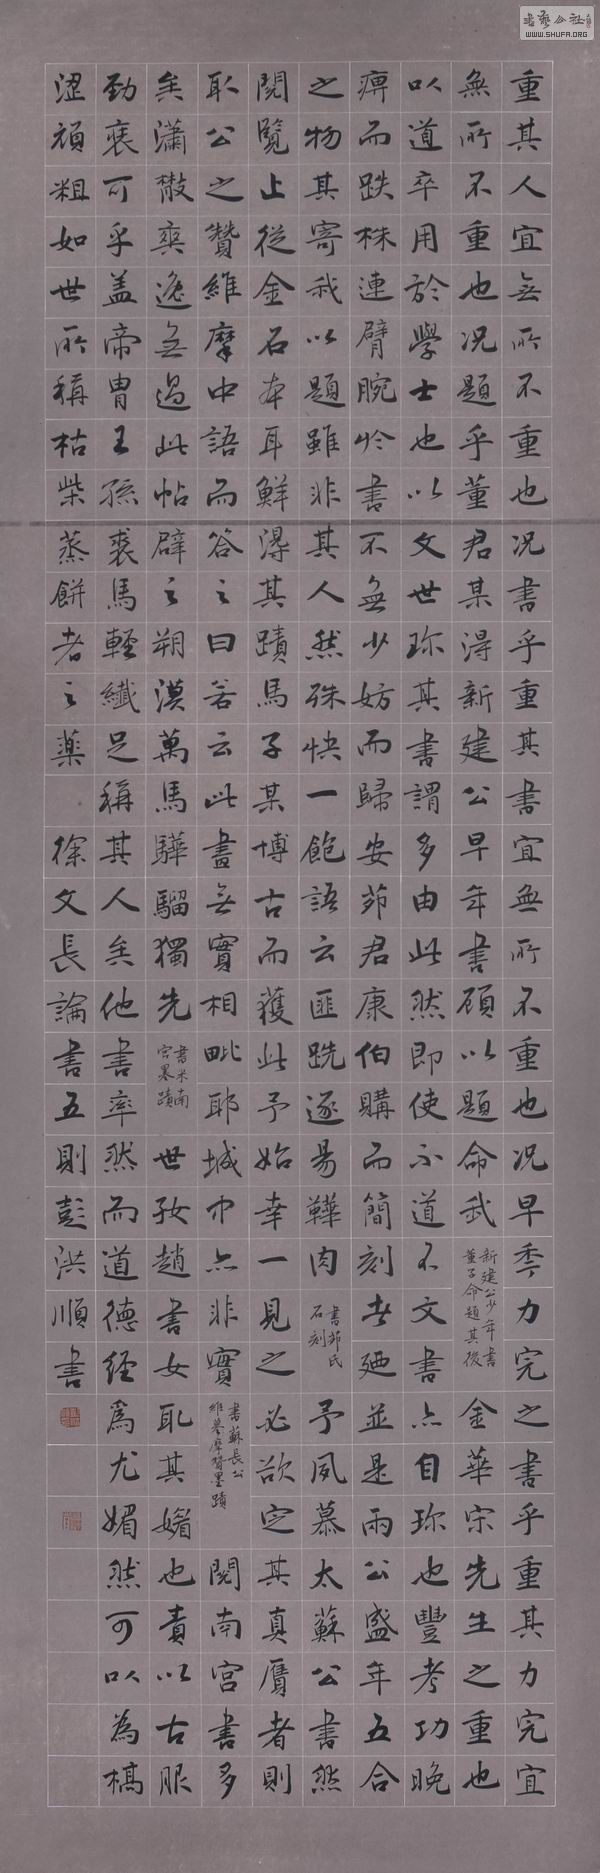 重其人宜無所不重也况書乎重其書宜無所不重也况早季力完之書乎重其力完宜
無所不重也况題乎董君某淂新建公早年書顧以題命武新建公少年書董子命題其後金華宋先生之重也
以道卒用於學士也以文世珎其書謂多由此然即使不道不文書亦自珎也豐考功晚
痹而跌株連臂腕於書不無少妨而歸安茆君康伯購而簡刻者廼並是兩公盛年五合
之物其寄我以題雖非其人然殊快一飽語云匪跣逐易鞾肉書茆氏石刻予夙慕太蘇公書然
閱覽止從金石本耳鮮淂其蹟馬子某博古而獲此予始幸一見之必欲定其真贋者則
取公之贊維摩中語而答之曰若云此畫無實相毗耶城中亦非實書蘇長公維摹摩贊墨蹟閱南宮書多
矣瀟散爽逸無過此帖辟之朔漠萬馬驊騮獨先書米南宮墨蹟世孜趙書女耻其媚也責以古服
勁裹可乎盖帝胄王孫裘馬輕纖足稱其人矣他書率然而道德經為尤媚然可以為槁
澀頑粗如世所稱枯柴蒸餅者之藥 徐文長論書五則彭洪順書
WWW.SHUFA.ORG